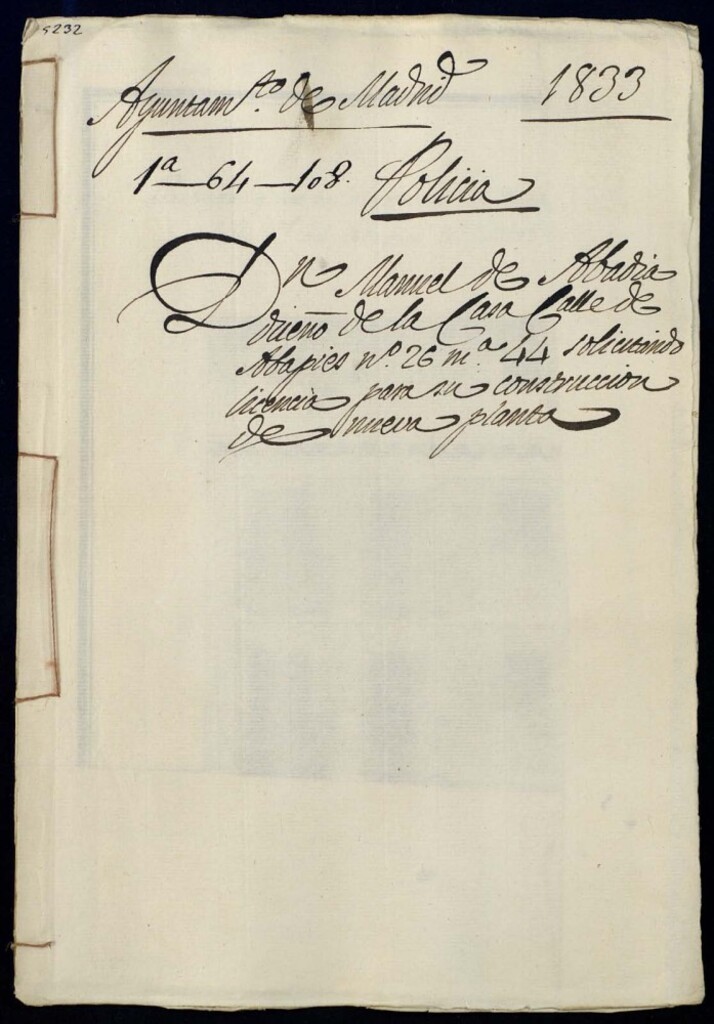 5232
Ayuntam.to de Madrid 1833
1a—64—108. Policia
Dn Manuel de Abadia
dueño de la Casa Calle de
Abapies n.o 26 m.a 44 solicitando
licencia para su construccion
de nueva planta